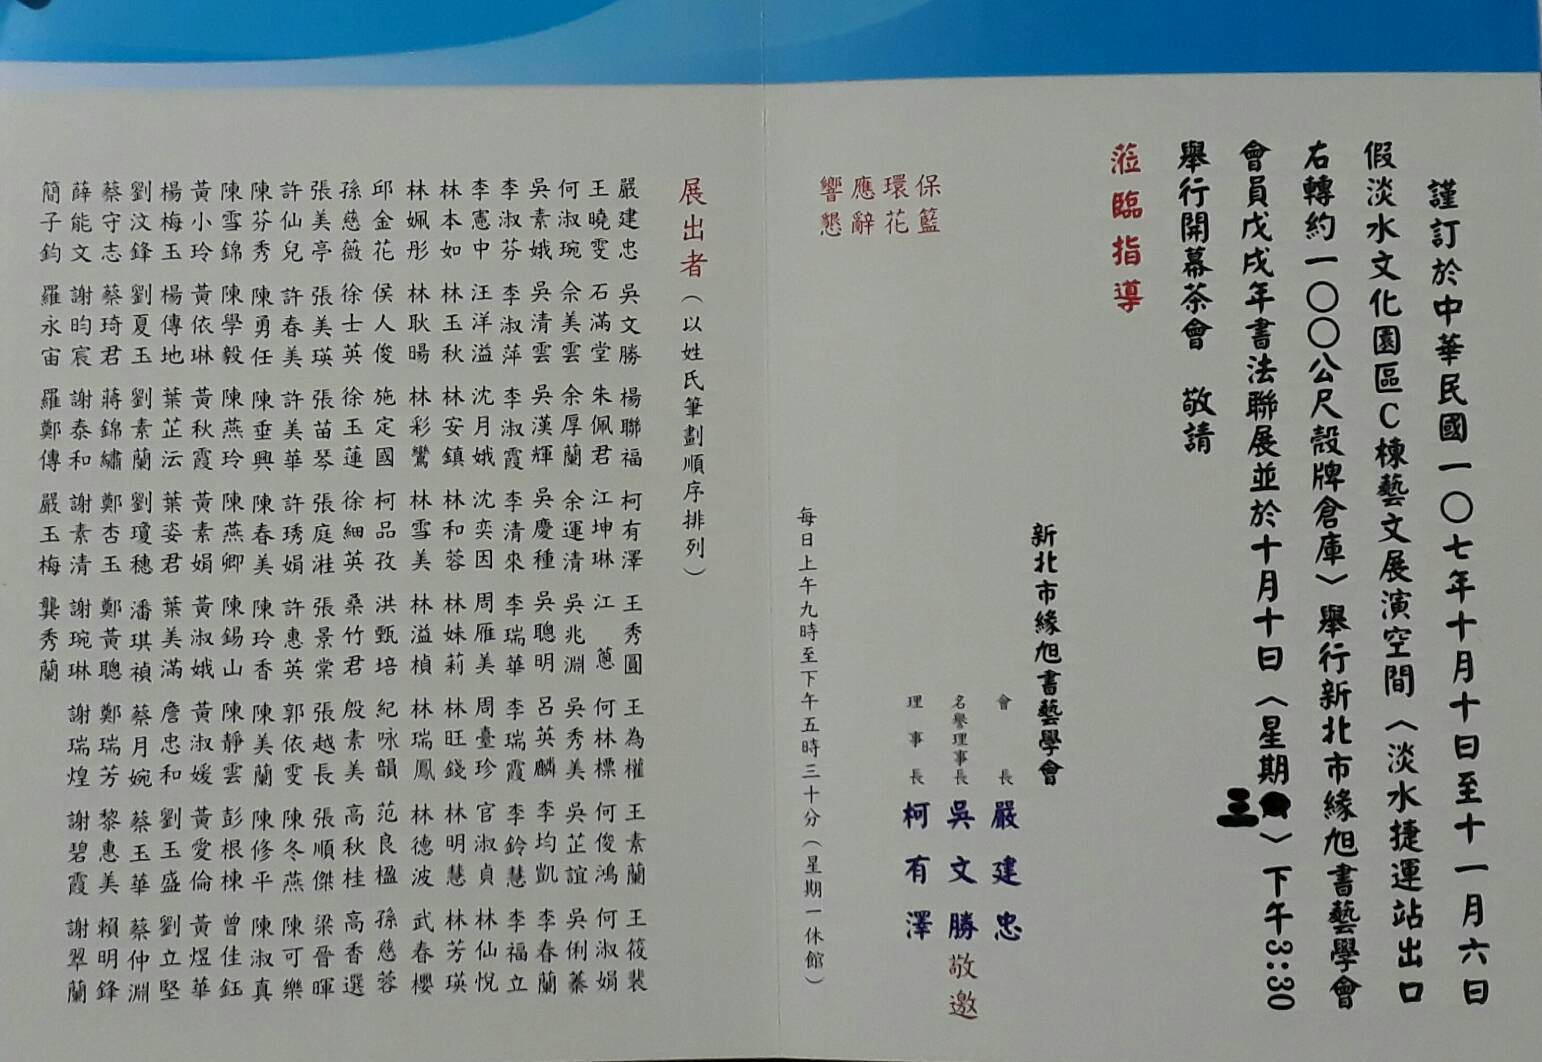 謹訂於中華民國一〇七年十月十日至十一月六日
假淡水文化園區C棟藝文展演空間〈淡水捷運站出口
右轉約一〇〇公尺殼牌倉庫〉舉行新北市緣旭書藝學會
會員戊戌年書法聯展並於十月十日〈星期三〉下午3:30
舉行開幕茶會 敬請
蒞臨指導
新北市緣旭書藝學會
會長 嚴建忠
名譽理事長 吳文勝 敬邀
理事長 柯有澤
保籃
環花
應辭
響懇
每日上午九時至下午五時三十分（星期一休館）
展出者（以姓氏筆劃順序排列）
嚴建忠 吳文勝 楊聯福 柯有澤 王秀圓 王為權 王素蘭 王筱裴
王曉雯 石滿堂 朱佩君 江坤琳 江蔥 何林標 何俊鴻 何淑娟
何淑琬 佘美雲 余厚蘭 余運清 吳兆淵 吳秀美 吳芷誼 吳俐蓁
吳素娥 吳清雲 吳漢輝 吳慶種 吳聰明 呂英麟 李均凱 李春蘭
李淑芬 李淑萍 李淑霞 李清來 李瑞華 李瑞霞 李鈴慧 李福立
李憲中 汪洋溢 沈月娥 沈奕因 周雁美 周臺珍 官淑貞 林仙悅
林本如 林玉秋 林安鎮 林和蓉 林妹莉 林旺錢 林明慧 林芳瑛
林姵彤 林耿暘 林彩鸞 林雪美 林溢楨 林瑞鳳 林德波 武春櫻
邱金花 侯人俊 施定國 柯品孜 洪甄培 紀咏韻 范良楹 孫慈蓉
孫慈薇 徐士英 徐玉蓮 徐細英 桑竹君 殷素美 高秋桂 高香選
張美亭 張美瑛 張苗琴 張庭溎 張景棠 張越長 張順傑 梁晉暉
許仙兒 許春美 許美華 許琇娟 許惠英 郭依雯 陳冬燕 陳可樂
陳芬秀 陳勇任 陳垂興 陳春美 陳玲香 陳美蘭 陳修平 陳淑真
陳雪錦 陳學毅 陳燕玲 陳燕卿 陳錫山 陳靜雲 彭根棟 曾佳鈺
黃小玲 黃依琳 黃秋霞 黃素娟 黃淑娥 黃淑媛 黃愛倫 黃煜華
楊梅玉 楊傳地 葉芷沄 葉姿君 葉美滿 詹忠和 劉玉盛 劉立堅
劉汶鋒 劉夏玉 劉素蘭 劉瓊穗 潘琪禎 蔡月婉 蔡玉華 蔡仲淵
蔡守志 蔡琦君 蔣錦繡 鄭杏玉 鄭黃聰 鄭瑞芳 黎惠美 賴明鋒
薛能文 謝昀宸 謝泰和 謝素清 謝琬琳 謝瑞煌 謝碧霞 謝翠蘭
簡子鈞 羅永宙 羅鄭傳 嚴玉梅 龔秀蘭